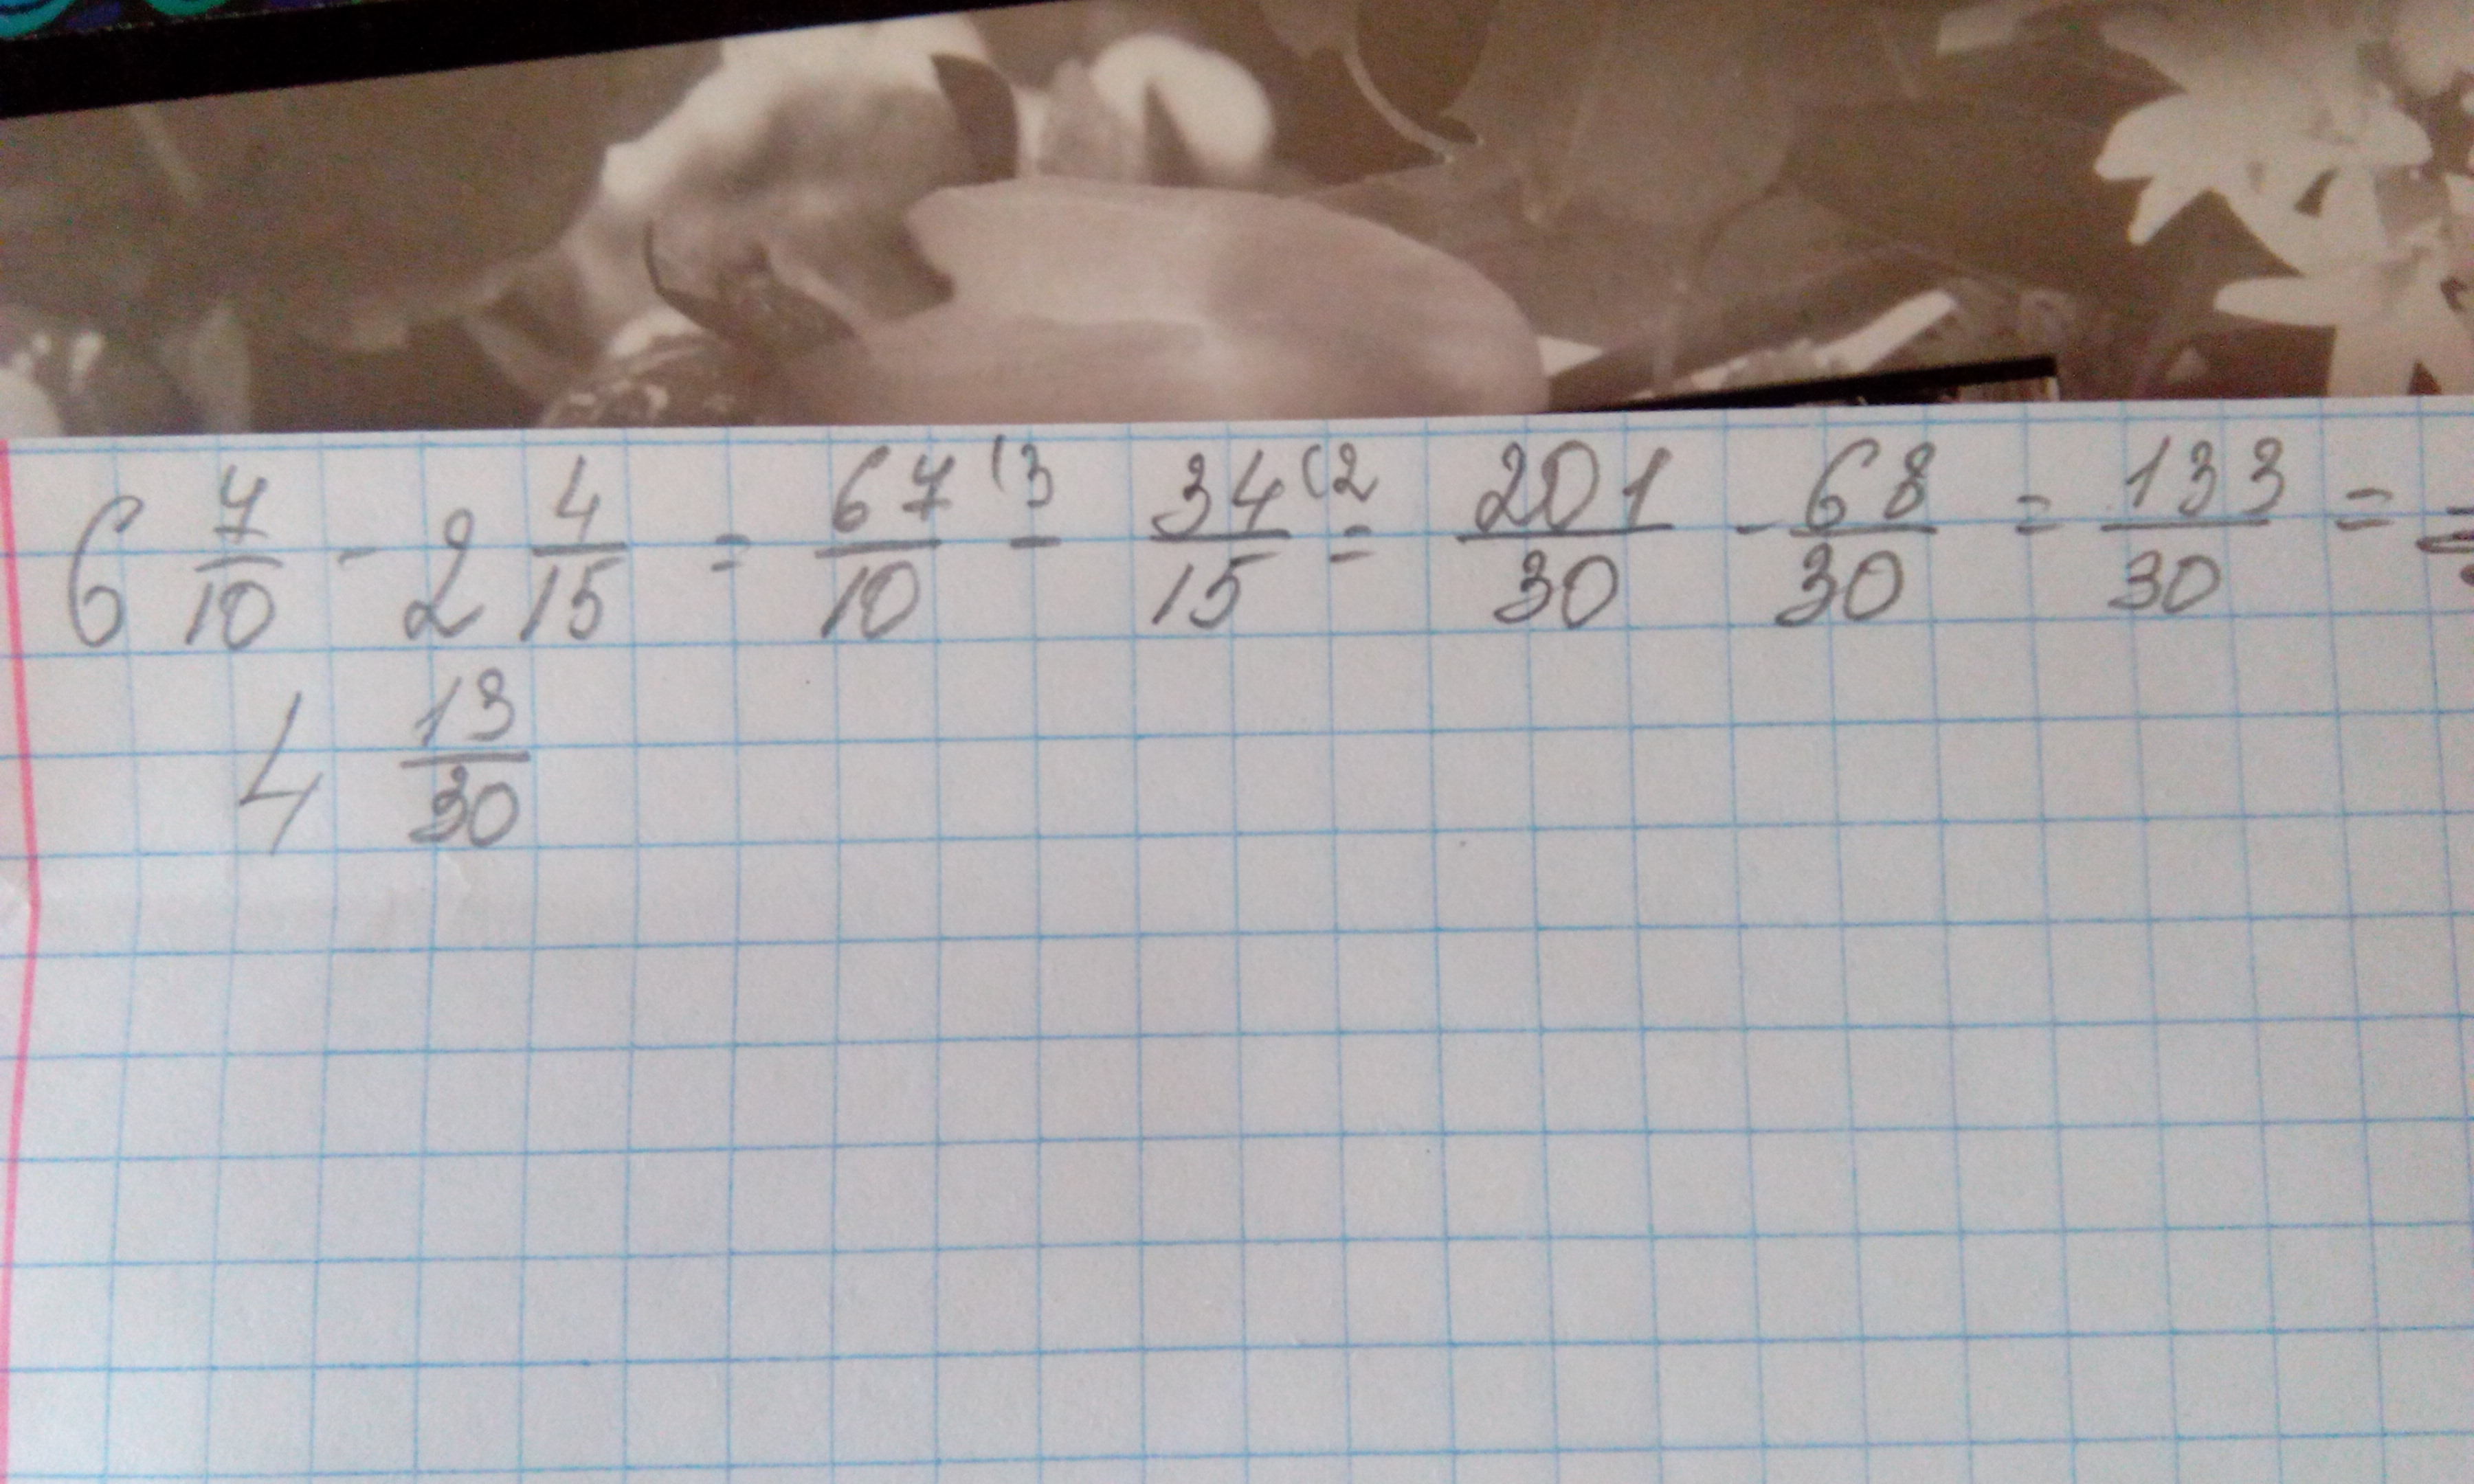 6 7/10 - 2 4/15 = 67/10 (3 - 34/15 (2 = 201/30 - 68/30 = 133/30 =
4 13/30